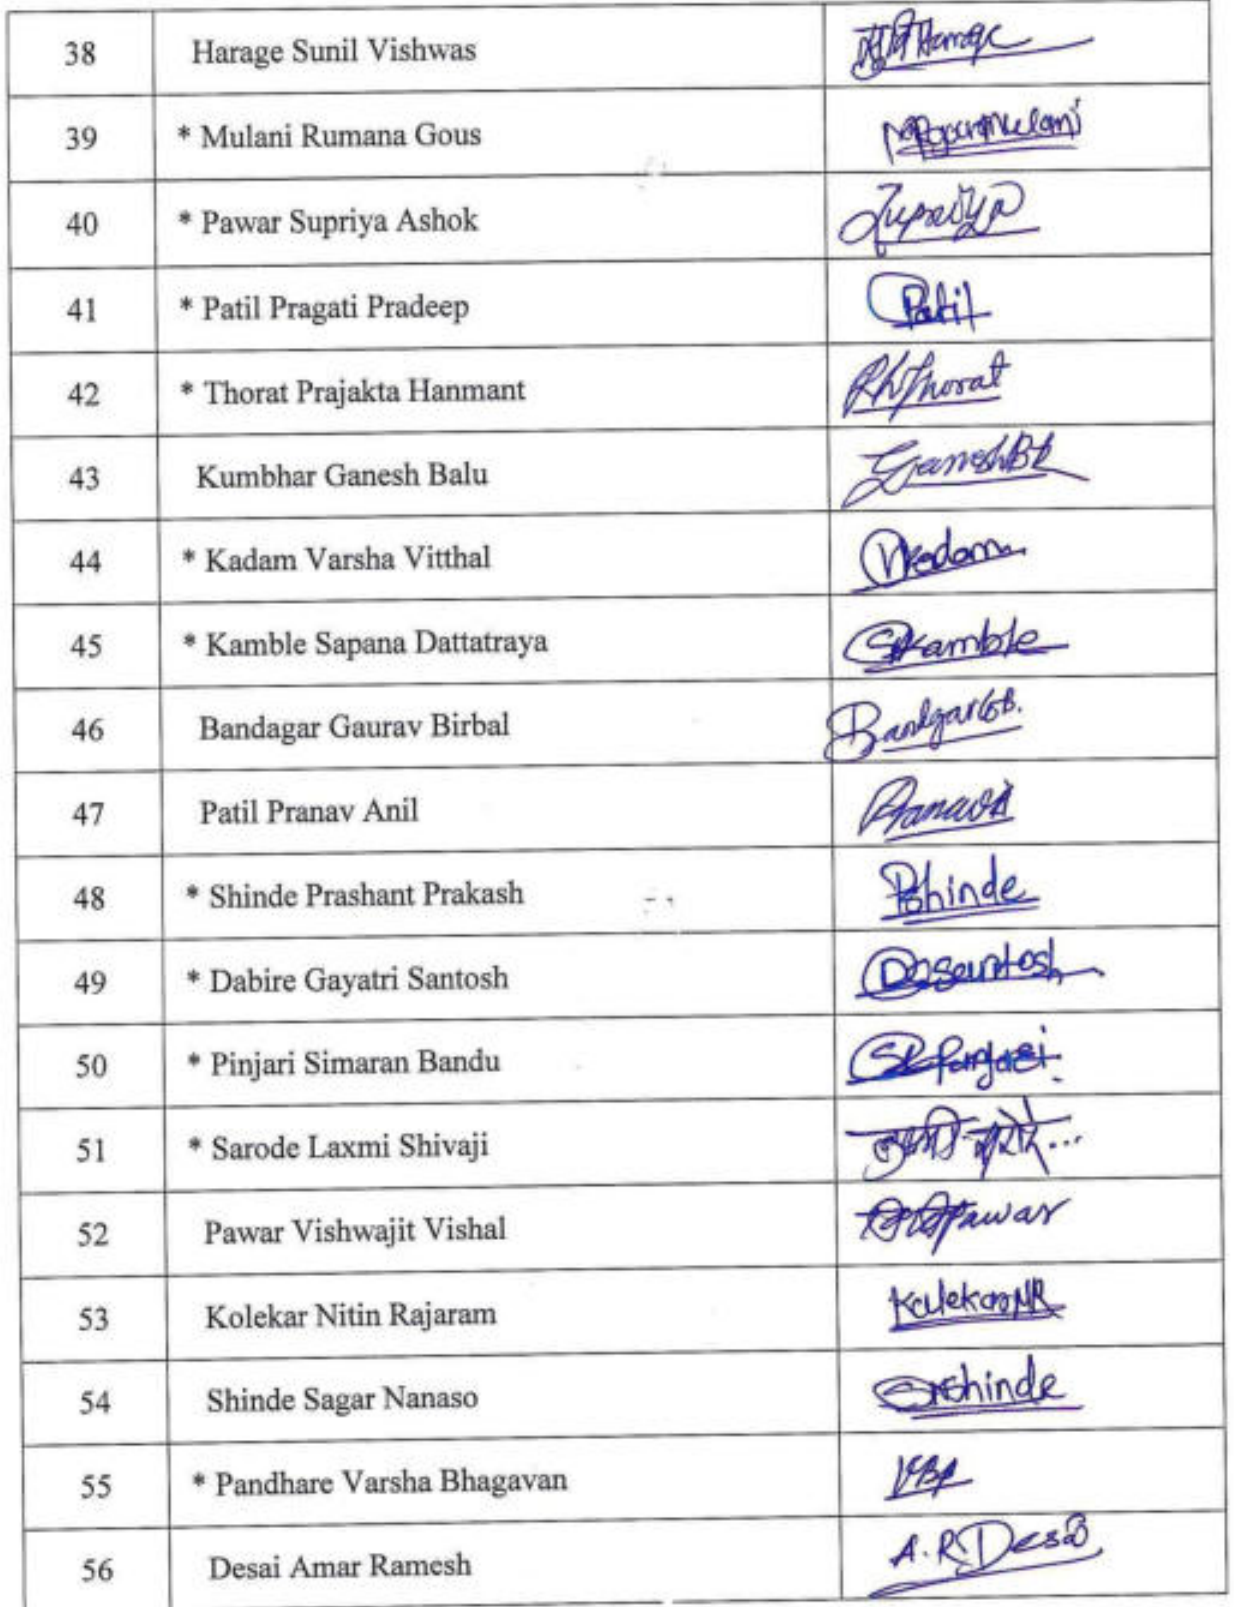 38 Harage Sunil Vishwas
39 * Mulani Rumana Gous
40 * Pawar Supriya Ashok Supriya
41 * Patil Pragati Pradeep Patil
42 * Thorat Prajakta Hanmant PhThorat
43 Kumbhar Ganesh Balu GaneshBK
44 * Kadam Varsha Vitthal VKadam
45 * Kamble Sapana Dattatraya SKamble
46 Bandagar Gaurav Birbal BandgarGB.
47 Patil Pranav Anil PranavA
48 * Shinde Prashant Prakash PShinde
49 * Dabire Gayatri Santosh
50 * Pinjari Simaran Bandu
51 * Sarode Laxmi Shivaji
52 Pawar Vishwajit Vishal Pawar
53 Kolekar Nitin Rajaram KolekarNR
54 Shinde Sagar Nanaso SNShinde
55 * Pandhare Varsha Bhagavan VBP
56 Desai Amar Ramesh A.R.Desai